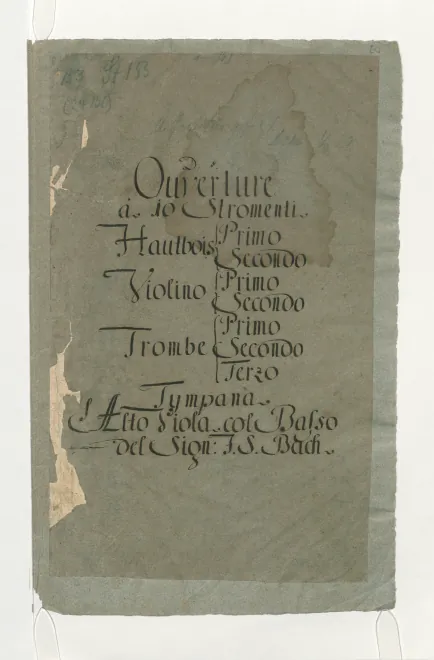 153 St 153
Ouverture
à 10 Stromenti.
Hautbois Primo
Secondo
Violino Primo
Secondo
Trombe Primo
Secondo
Terzo
Tympana.
Alto Viola col Basso
del Sign: J. S. Bach.